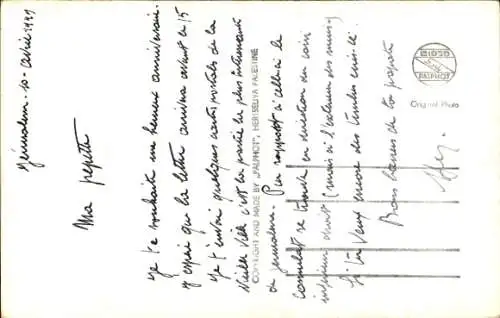 Jérusalem 10 avril 1949
Ma pepette
Je te souhaite un heureux anniversaire.
J'espère que la lettre arrivera avant le 15
Je t'envoie quelques cartes postales de la
Vieille Ville c'est la partie la plus intéressante
de Jerusalem. Par rapport à celle-ci le
consulat se trouve en direction du coin
inférieur droit (mais à l'extérieur des murs)
Si tu veux encore des timbres écris-le.
Bons baisers de ton papa
COPYRIGHT AND MADE BY „PALPHOT", HERTSELIYA PALESTINE
PALPHOT
Original Photo